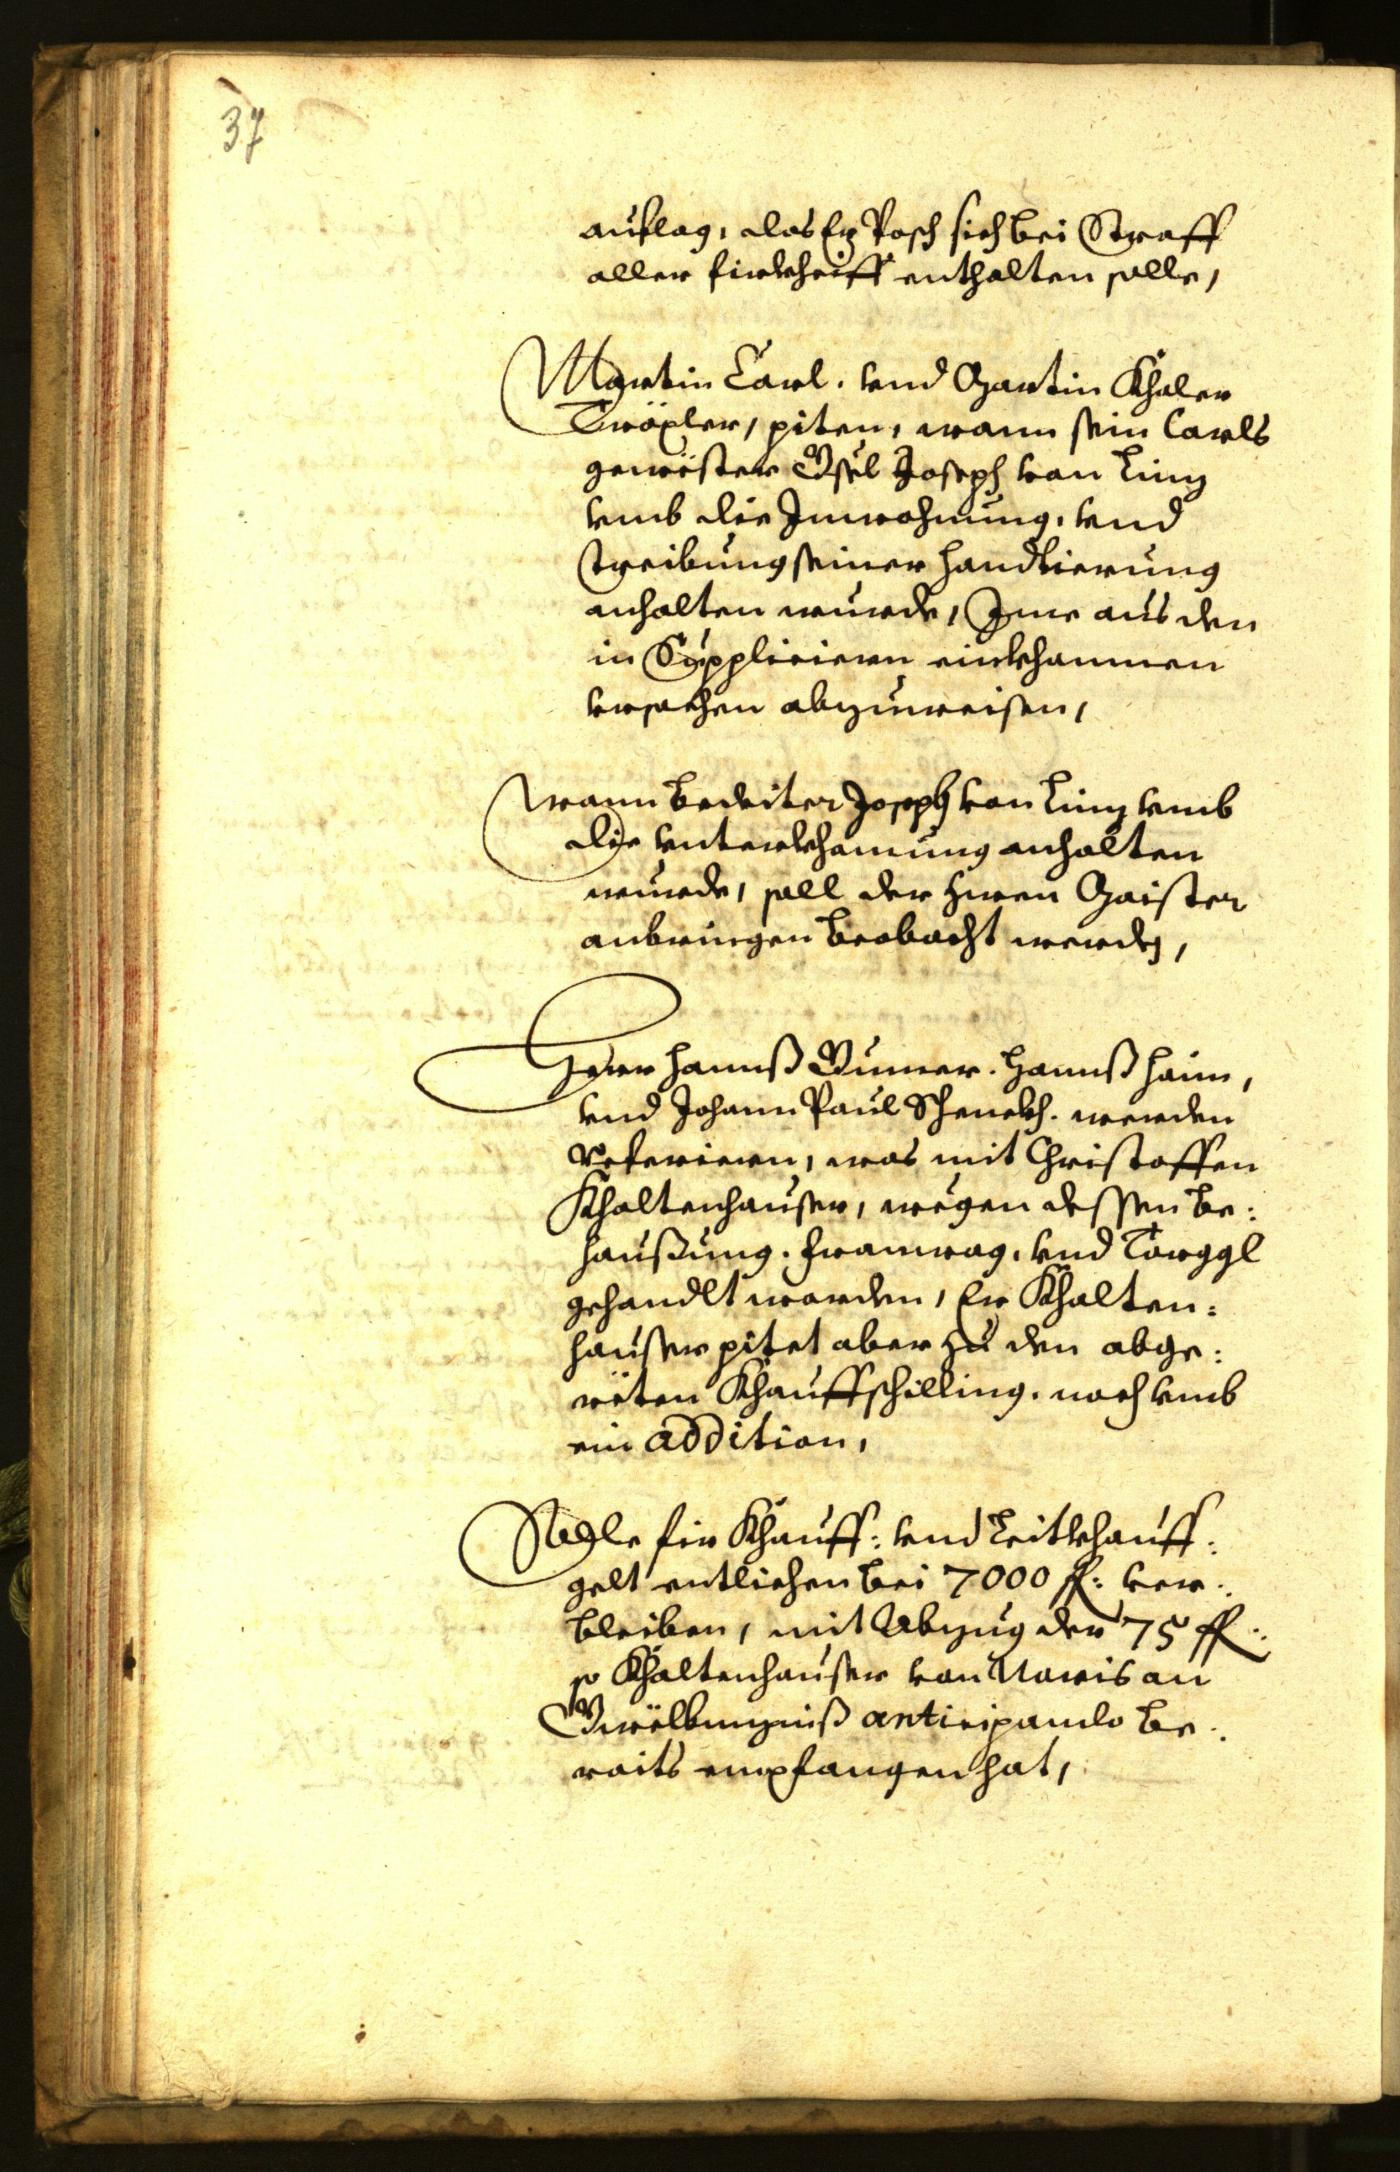 37
auflag, das Er Posch sich bei Straff
aller firkheiff enthalten solle,
Martin Carl. vnd Martin Khaler
Träxler, piten, wann sein Carls
gewester Gsel Joseph von Linz
vmb die Inwohnung, vnd
treibung seiner handtierung
anhalten wurde, Ime aus den
in Suppliciern einkhommen
vrsachen abzuweisen,
wann bedeiter Joseph von Linz vmb
die vnterkhomung anhalten
wurde, soll der herrn Maister
anbringen beobacht werden,
Herr Hannß Gumer. Hannß Haim,
vnd Johann Paul Schenckh. werden
referieren, was mit Christoffen
Khaltenhauser, wegen dessen be:
haußung. Fronwag, vnd Torggl
gehandlt worden, Er Khalten:
hauser pitet aber zu den abge:
reten Khauffschilling. noch vmb
ein addition,
Solle fir Khauff: vnd Leitkhauff:
gelt entlichen bei 7000 f: ver:
bleiben, mit Abzug der 75 f:
so Khaltenhauser von Navis an
Gwelbmzinß anticipando be:
raits empfangen hat,